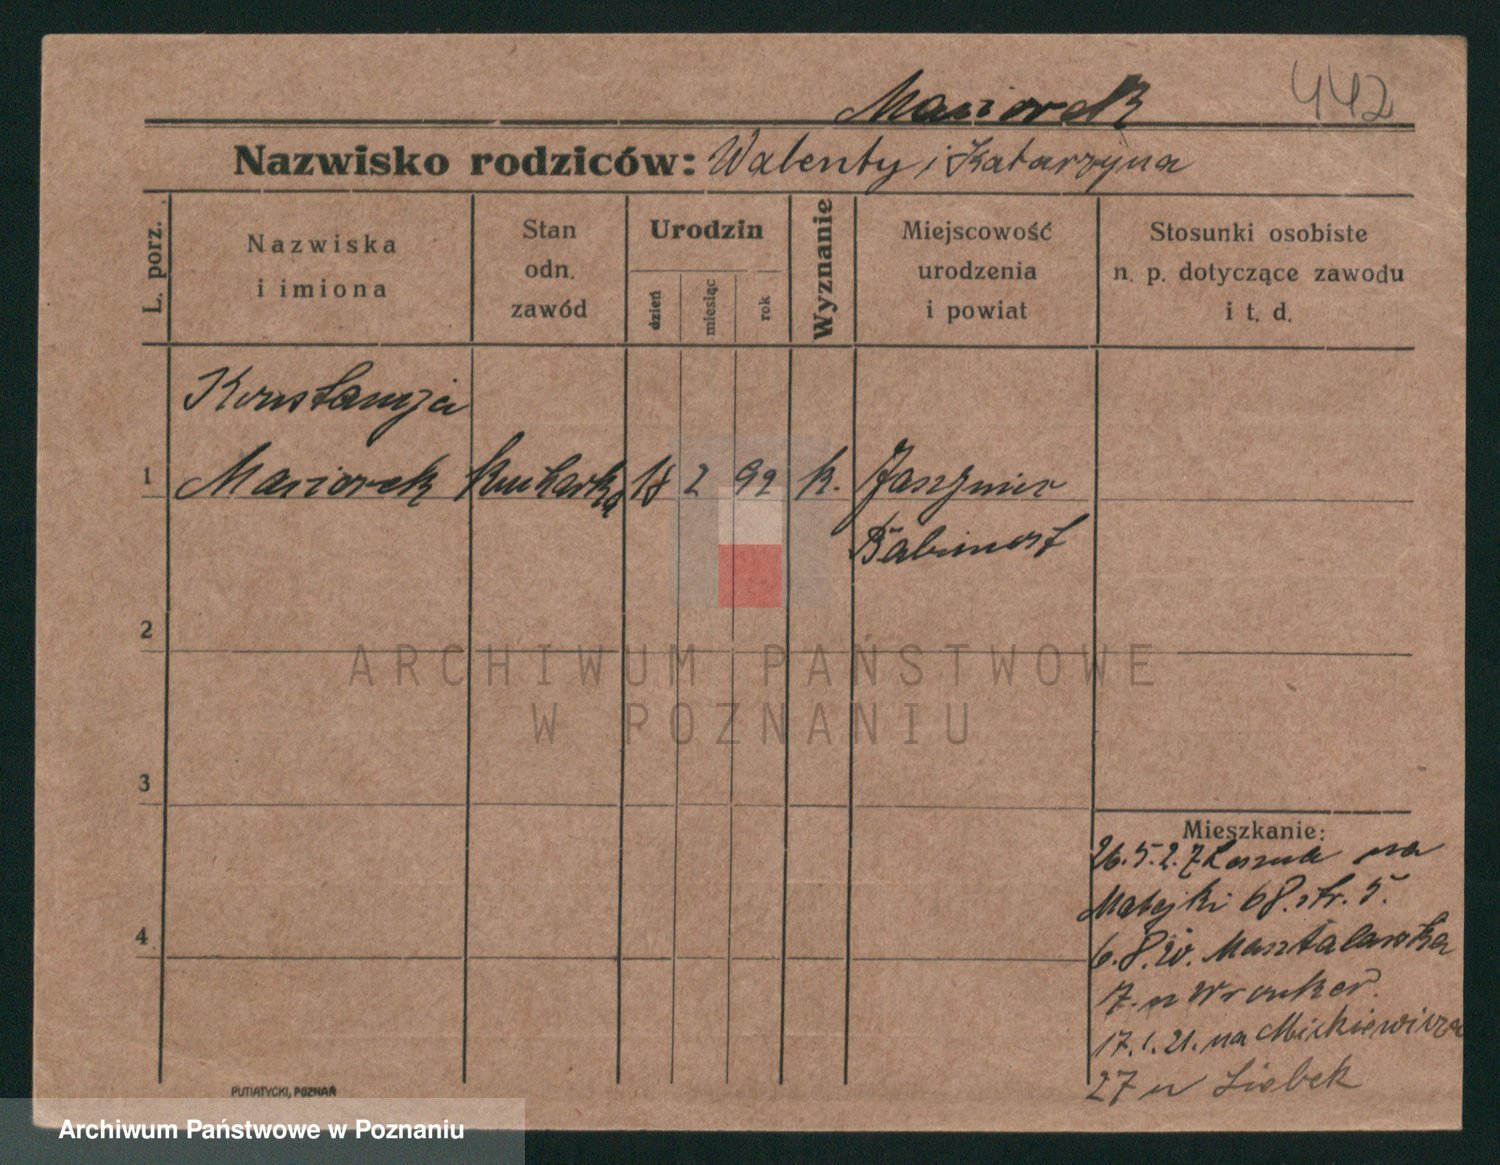 442
Maziorek
Nazwisko rodziców: Walenty i Katarzyna
L. porz.
Nazwiska
i imiona
Stan
odn.
zawód
Urodzin
dzień
miesiąc
rok
Wyznanie
Miejscowość
urodzenia
i powiat
Stosunki osobiste
n. p. dotyczące zawodu
i t. d.
Konstancja
1 Maziorek kucharka 18 2 92 k.
Babimost
2
ARCHIWUM PAŃSTWOWE
W POZNANIU
3
Mieszkanie:
26.5.2. na
Matejki 68. ptr. 5.
4
6.8.20. Masztalarska
7. u Wronker.
17.1.21. na Mickiewicza
27 u
PUTIATYCKI, POZNAŃ
Archiwum Państwowe w Poznaniu